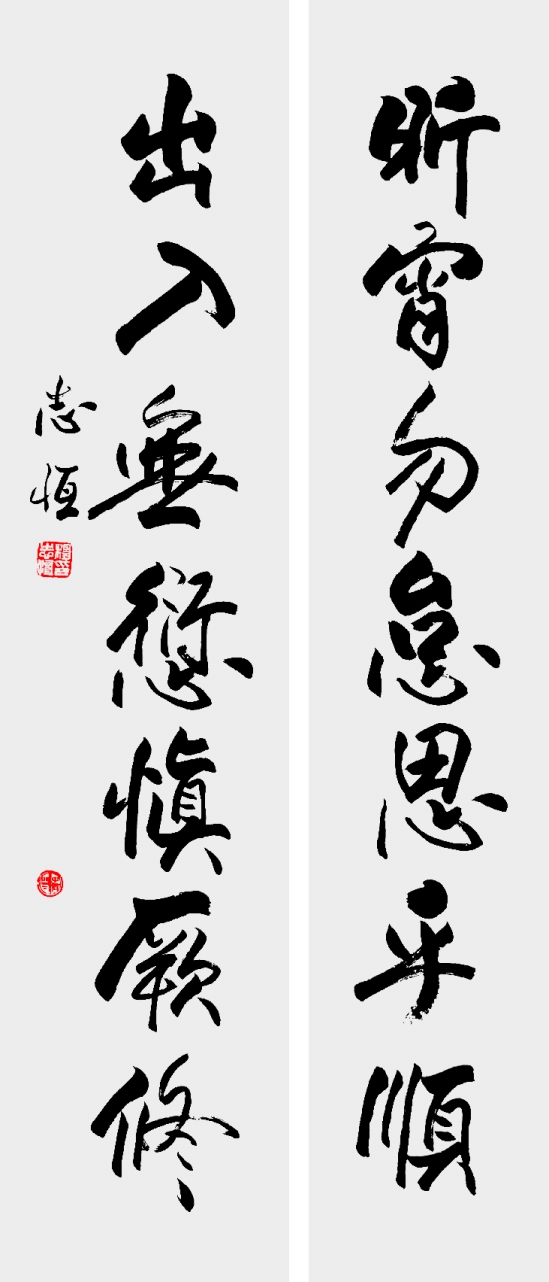 昕宵勿怠思乎順
出入無愆慎厥修
志恒